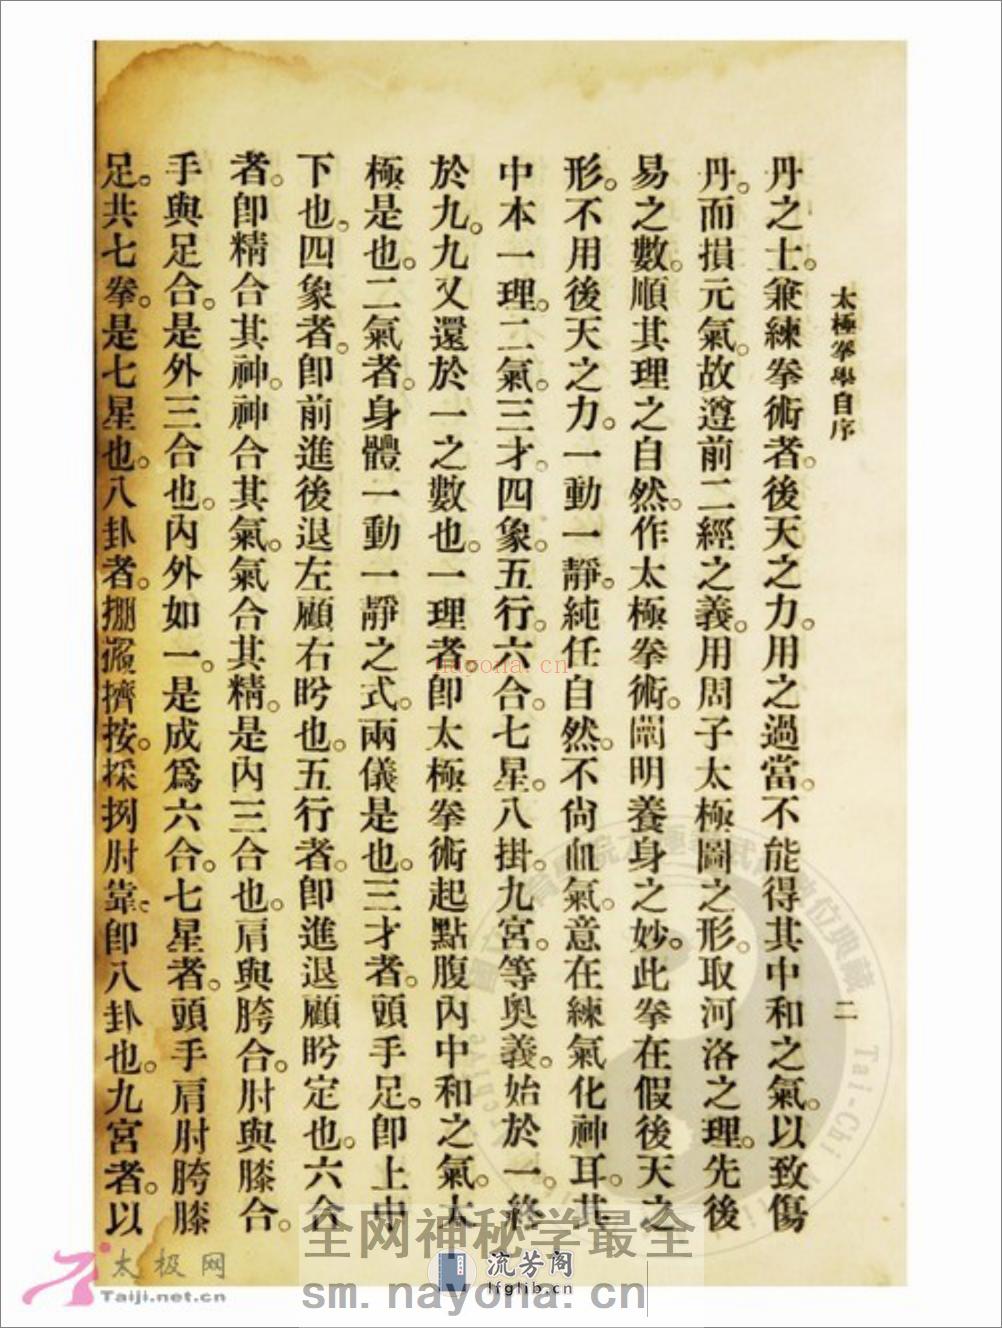 太極拳學自序
二
丹之士。兼練拳術者。後天之力。用之過當。不能得其中和之氣。以致傷
丹。而損元氣。故遵前二經之義。用周子太極圖之形。取河洛之理。先後
易之數。順其理之自然。作太極拳術。闡明養身之妙。此拳在假後天之
形。不用後天之力。一動一靜。純任自然。不尙血氣。意在練氣化神耳。其
中本一理。二氣。三才。四象。五行。六合。七星。八掛。九宮。等奥義。始於一。終
於九。九又還於一之數也。一理者。卽太極拳術起點腹內中和之氣。太
極是也。二氣者。身體一動一靜之式。兩儀是也。三才者。頭手足。卽上中
下也。四象者。卽前進後退左顧右盻也。五行者。卽進退顧盻定也。六合
者。卽精合其神。神合其氣。氣合其精。是內三合也。肩與胯合。肘與膝合。
手與足合。是外三合也。內外如一。是成爲六合。七星者。頭手肩肘胯膝
足。共七拳。是七星也。八卦者。掤擠按。採挒肘靠。卽八卦也。九宮者。以
nayona.cn
全网神秘学最全
sm.nayona.cn
流芳阁
lfglib.cn
太极网
Taiji.net.cn
位典藏
Tai-Chi